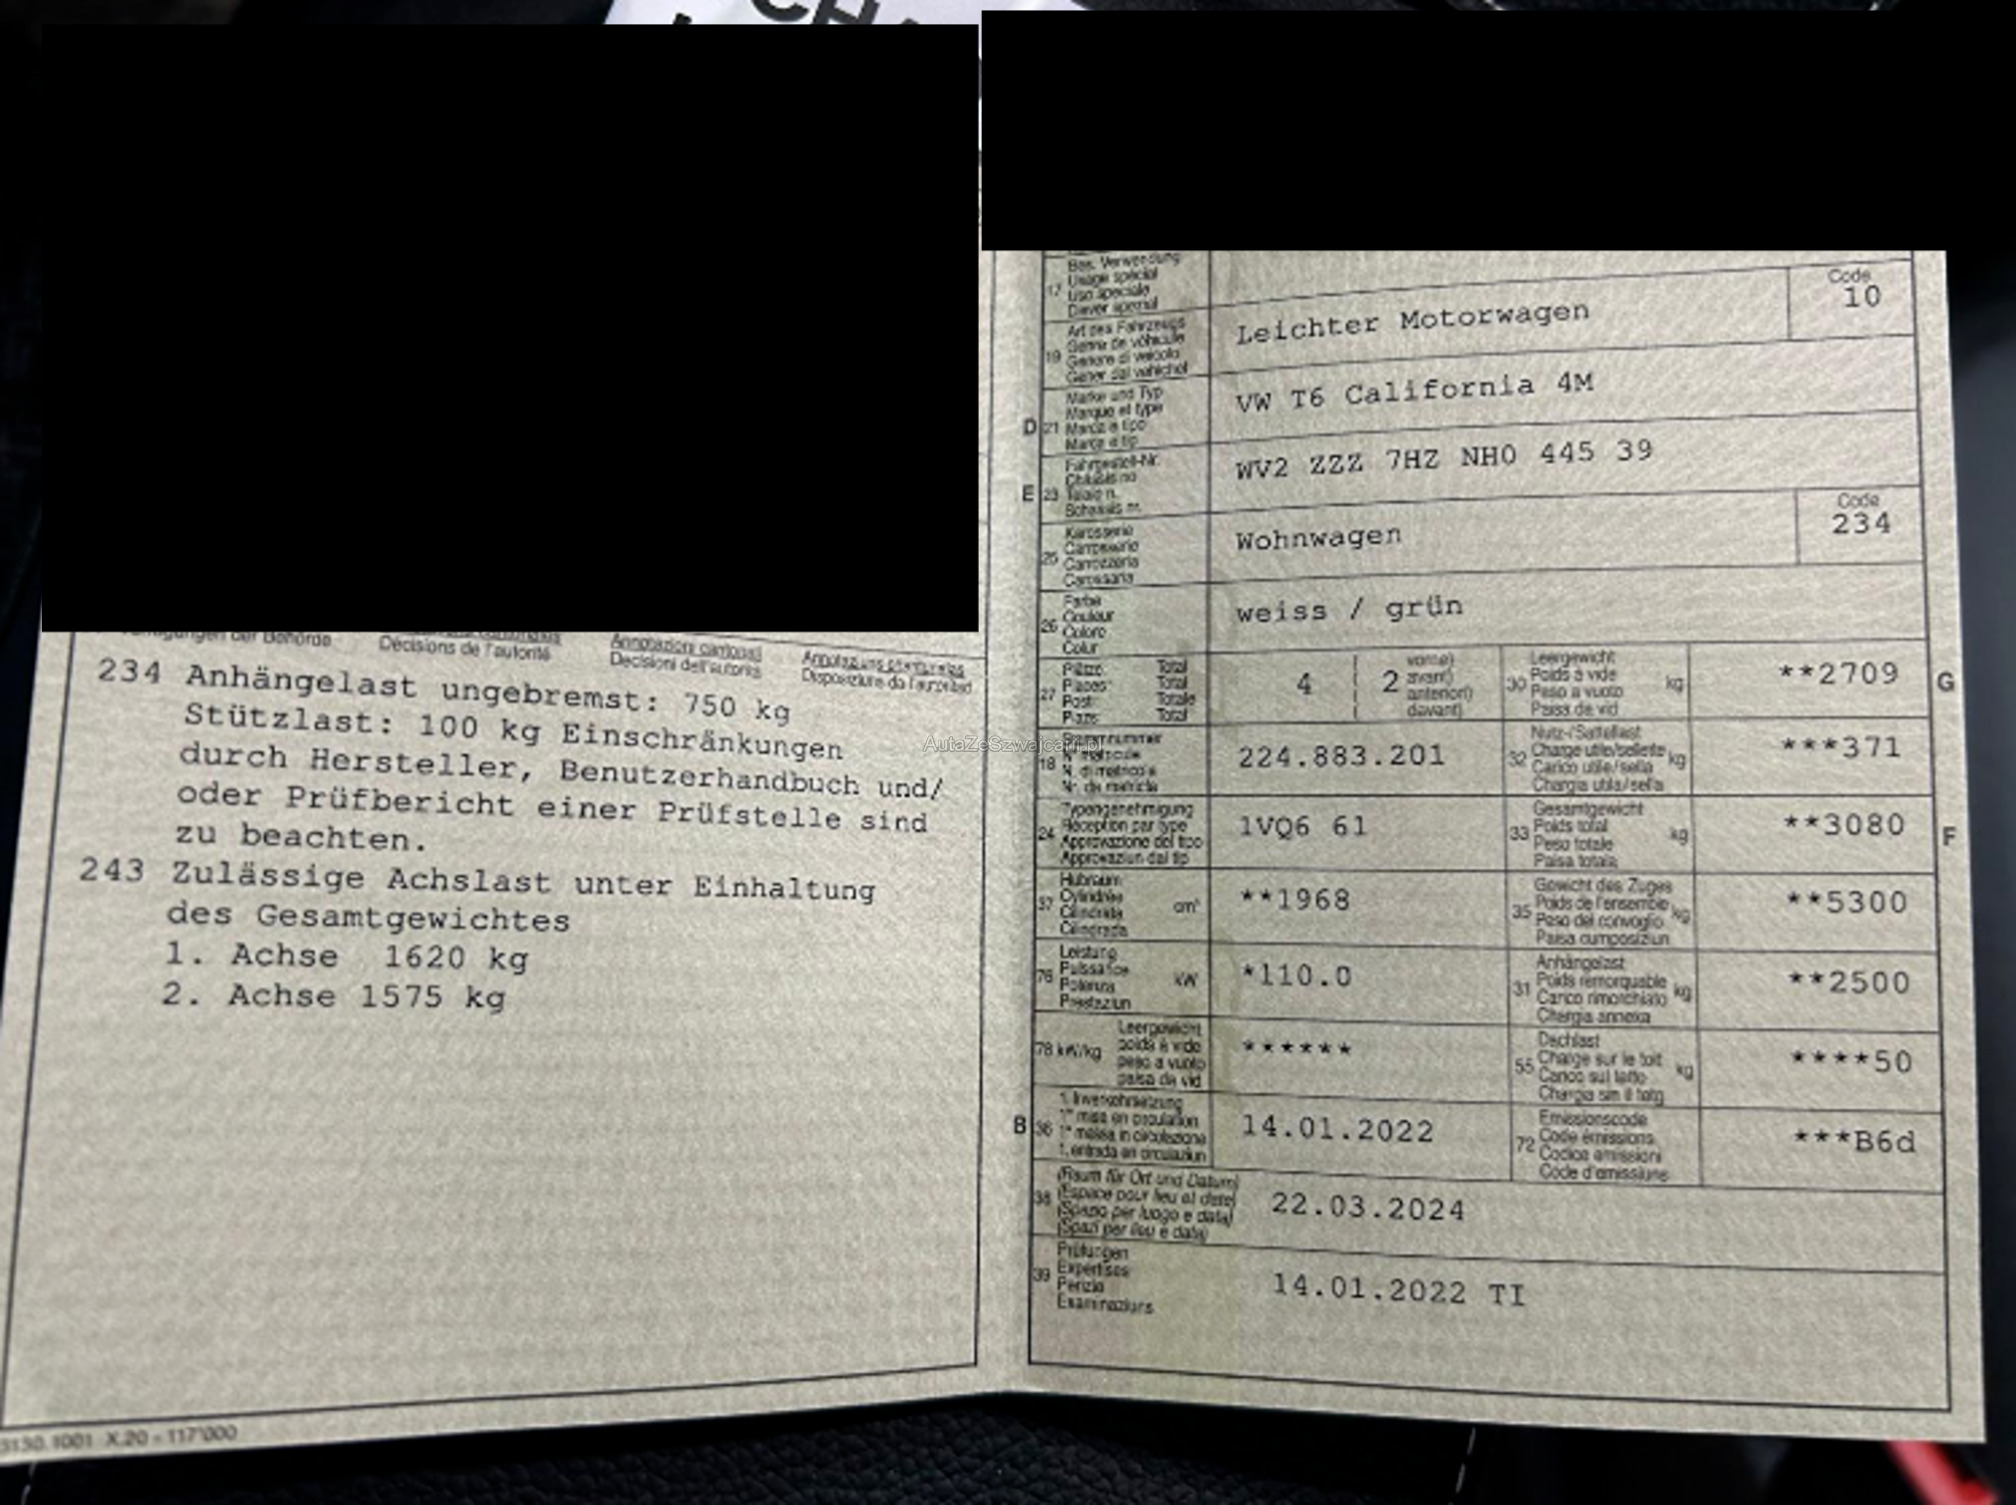 CHA
Verfügungen der Behörde Décisions de l'autorité Decisioni dell'autorità Disposiziuns da l'autoritad
Annotazioni cantonali Annotaziuns chantunalas
234 Anhängelast ungebremst: 750 kg
Stützlast: 100 kg Einschränkungen
durch Hersteller, Benutzerhandbuch und/
oder Prüfbericht einer Prüfstelle sind
zu beachten.
243 Zulässige Achslast unter Einhaltung
des Gesamtgewichtes
1. Achse 1620 kg
2. Achse 1575 kg
3150.1001 X.20 - 117'000
AutaZeSzwajcarii.pl
17 Bes. Verwendung
Usage spécial
Uso speciale
Diever spezial
19 Art des Fahrzeugs
Genre de véhicule
Genere di veicolo
Gener dal vehichel
Leichter Motorwagen
Code
10
D 21 Marke und Typ
Marque et type
Marca e tipo
Marca e tip
VW T6 California 4M
E 23 Fahrgestell-Nr.
Châssis no
Telaio n.
Schassis nr.
WV2 ZZZ 7HZ NH0 445 39
25 Karosserie
Carrosserie
Carrozzeria
Carossaria
Wohnwagen
Code
234
26 Farbe
Couleur
Colore
Colur
weiss / grün
27 Plätze: Total
Places: Total
Posti: Totale
Plazs: Total
4 2
vorne)
avant)
anteriori)
davant)
30 Leergewicht
Poids à vide kg
Peso a vuoto
Paisa da vid
**2709
G
18 Stammnummer
N° matricule
N. di matricola
Nr. da matricla
224.883.201
32 Nutz-/Sattellast
Charge utile/sellette kg
Carico utile/sella
Chargia utila/sella
***371
24 Typengenehmigung
Réception par type
Approvazione del tipo
Approvaziun dal tip
1VQ6 61
33 Gesamtgewicht
Poids total kg
Peso totale
Paisa totala
**3080
F
37 Hubraum
Cylindrée cm³
Cilindrata
Cilindrada
**1968
35 Gewicht des Zuges
Poids de l'ensemble kg
Peso del convoglio
Paisa cumposiziun
**5300
76 Leistung
Puissance kW
Potenza
Prestaziun
*110.0
31 Anhängelast
Poids remorquable kg
Carico rimorchiato
Chargia annexa
**2500
78 kW/kg Leergewicht
poids à vide
peso a vuoto
paisa da vid
******
55 Dachlast
Charge sur le toit kg
Carico sul tetto
Chargia sin il tetg
****50
B 36 1. Inverkehrsetzung
1re mise en circulation
1a messa in circolazione
1. entrada en circulaziun
14.01.2022
72 Emissionscode
Code émissions
Codice emissioni
Code d'emissiuns
***B6d
38 (Raum für Ort und Datum)
(Espace pour lieu et date)
(Spazio per luogo e data)
(Spazi per lieu e data)
22.03.2024
39 Prüfungen
Expertises
Perizie
Examinaziuns
14.01.2022 TI